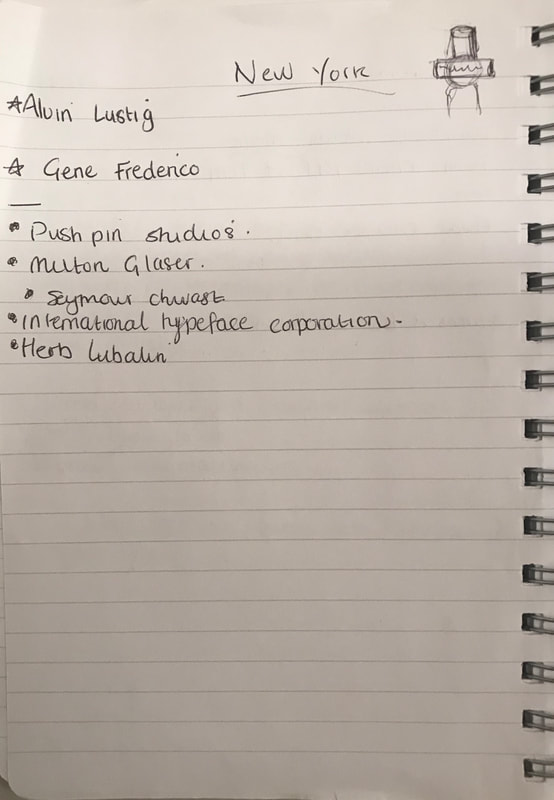 New York
☆Alvin Lustig
☆ Gene Frederico
• Push pin studios.
• Milton Glaser.
• Seymour chwast
• International typeface corporation.
• Herb Lubalin